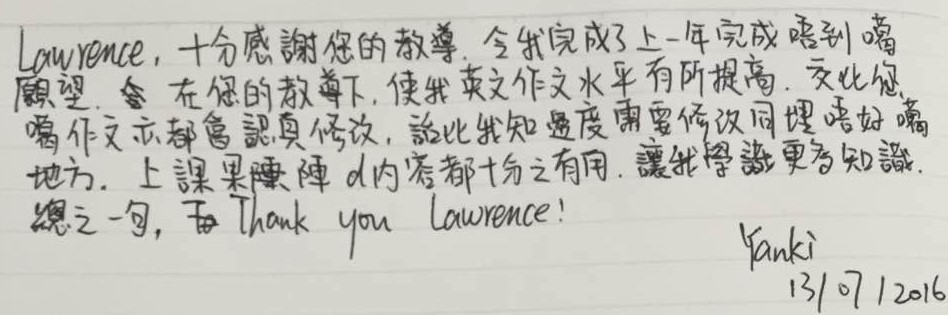 Lawrence, 十分感謝您的教導. 令我完成了上一年完成唔到嘅
願望. 在您的教導下, 使我英文作文水平有所提高. 交比您
嘅作文亦都會認真修改, 話比我知邊度需要修改同埋唔好嘅
地方. 上課果陣陣 d內容都十分之有用. 讓我學識更多知識.
總之一句, Thank you Lawrence!
Yanki
13/07/2016